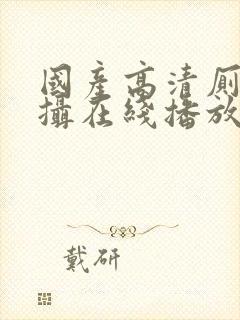 國產高清厠
攝在綫播放
戴研